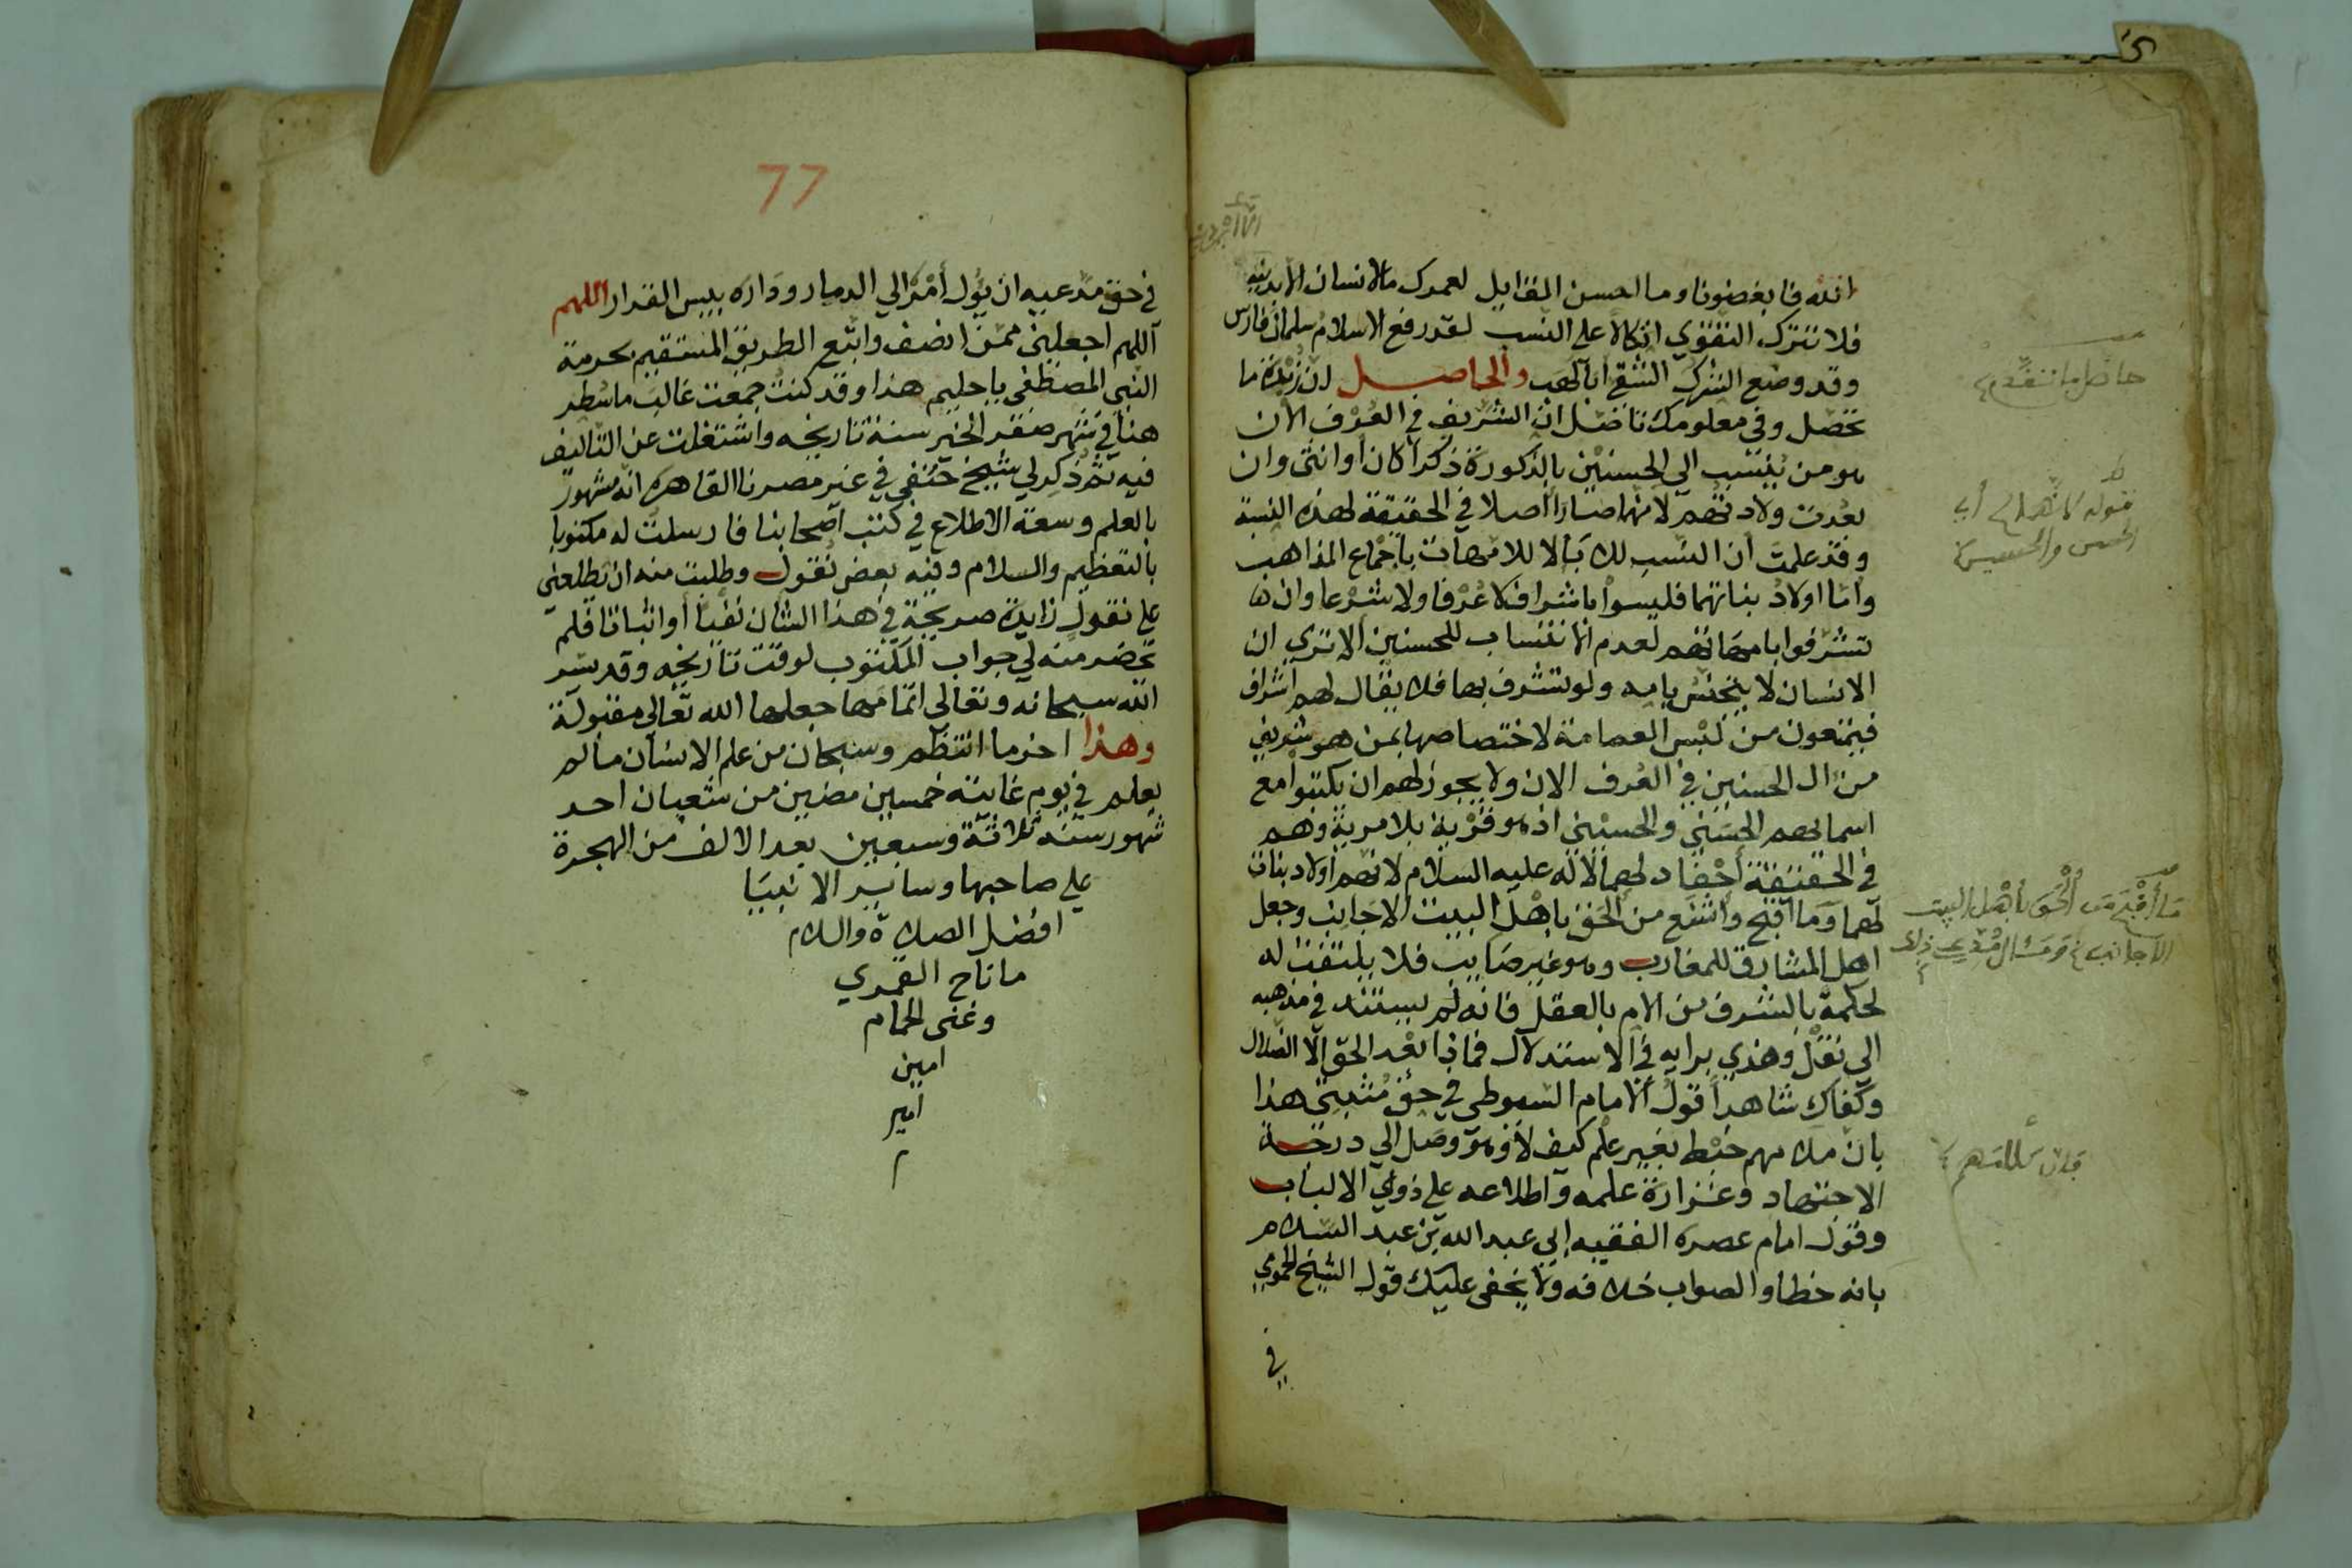 الله فابغضونا وما احسن المقايل لعمرك ما الانسان الا بدينه
فلا تترك التقوي اتكالا علي النسب لقد رفع الاسلام سلمان فارس
وقد وضع الشرك الشقي ابا لهب والحاصل ان زبدة ما
تحصل وفي معلومك تاصل ان الشريف في العرف الان
هو من ينتسب الي الحسنين بالذكورة ذكرا كان او انثى وان
بعدت ولادتهم لانهما صارا اصلا في الحقيقة لهذه النسبة
وقد علمت ان النسب للاباء لا للامهات باجماع المذاهب
واما اولاد بناتهما فليسوا باشراف لا عرفا ولا شرعا وان
تشرفوا بامهاتهم لعدم الانتساب للحسنين الا تري ان
الانسان لا يتجنس بامه ولو تشرف بها فلا يقال لهم اشراف
فيمنعون من لبس العمامة لاختصاصها بمن هو شريف
من ال الحسنين في العرف الان ولا يجوز لهم ان يكتبوا مع
اسمائهم الحسني والحسيني اذ هو فرية بلا مرية وهم
في الحقيقة احفاد لهما لا له عليه السلام لانهم اولاد بنات
لهما وما اقبح واشنع من الحق باهل البيت الاجانب وجعل
اهل المشارق للمغارب وهو غير صايب فلا يلتفت له
لحكمه بالشرف من الام بالعقل فانه لم يستند في مذهبه
الى نقل وهذي برايه في الاستدلال فماذا بعد الحق الا الضلال
وكفاك شاهدا قول الامام السيوطي في حق مثبتي هذا
بان كلامهم خبط بغير علم كيف لا وهو وصل الي درجة
الاجتهاد وغزارة علمه واطلاعه علي ذوي الالباب
وقول امام عصره الفقيه ابي عبد الله بن عبد السلام
بانه خطا والصواب خلافه ولا يخفى عليك قول الشيخ الحموي
في
حاصل ما تقدم
قوله لانهما اي
الحسن والحسين
ما اقبح من الحق باهل البيت
الاجانب
فان كلامهم
77
في حق مدعيه ان يؤل امره الي الدمار وداره بيس القرار اللهم
اللهم اجعلني ممن انصف واتبع الطريق المستقيم بحرمة
النبي المصطفى يا حليم هذا وقد كنت جمعت غالب ما سطر
هنا في شهر صفر الخير سنة تاريخه واشتغلت عن التاليف
فيه ثم ذكر لي شيخ حنفي في غير مصرنا القاهره انه مشهور
بالعلم وسعة الاطلاع في كتب اصحابنا فارسلت له مكتوبا
بالتعظيم والسلام وفيه بعض نقول وطلبت منه ان يطلعني
علي نقول زايدة صريحة في هذا الشان نفيا او اثباتا فلم
يحضر منه لي جواب المكتوب لوقت تاريخه وقد يسر
الله سبحانه وتعالى اتمامها جعلها الله تعالى مقبولة
وهذا اخر ما انتظم وسبحان من علم الانسان ما لم
يعلم في يوم غايته خمسين مضين من شعبان احد
شهور سنة ثلاثة وسبعين بعد الالف من الهجرة
علي صاحبها وساير الانبيا
افضل الصلاة والسلام
ما ناح القمري
وغنى الحمام
امين
امين
م